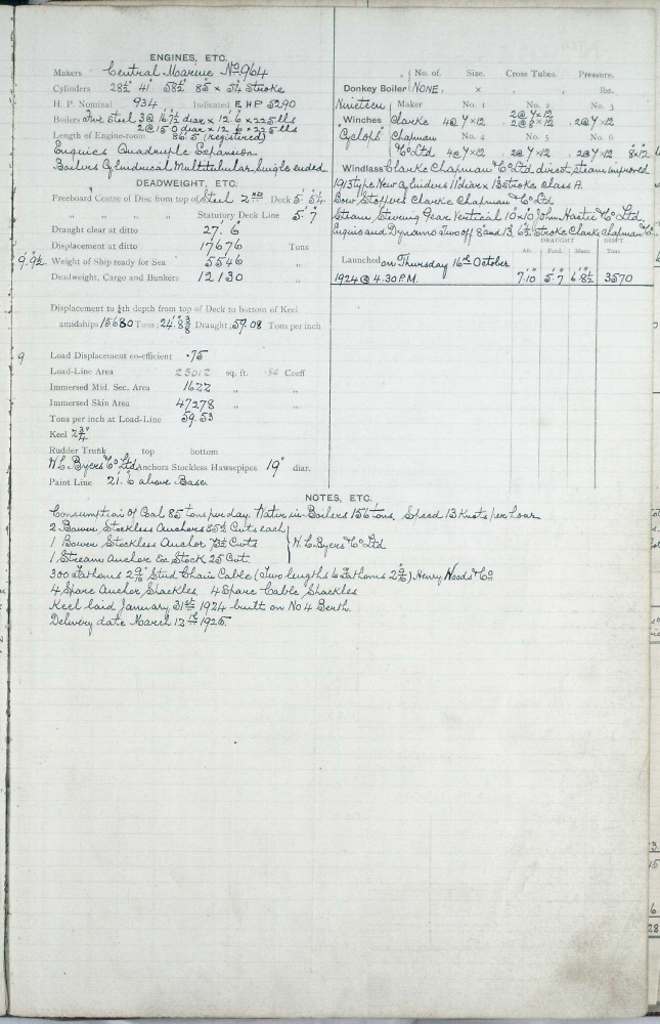 ENGINES, ETC.
Makers Central Marine No 964
Cylinders 28½" 41" 58½" 85" × 54" Stroke
H. P. Nominal 934 Indicated E H P 5290
Boilers Five Steel 3 @ 16' 7½" diar × 12' 6" × 225 lbs
2 @ 15' 0" diar × 12' 6" × 225 lbs
Length of Engine-room 86' 5 (registered)
Engines Quadruple Expansion
Boilers Cylindrical Multitubular Single ended
DEADWEIGHT, ETC.
Freeboard Centre of Disc from top of Steel 2nd Deck 5' 5¼
" " " " Statutory Deck Line 5' 7"
Draught clear at ditto 27' 6"
Displacement at ditto 17676 Tons
9' 9½ Weight of Ship ready for Sea 5546 "
Deadweight, Cargo and Bunkers 12130 "
Displacement to ¼th depth from top of Deck to bottom of Keel
amidships 15680 Tons; 24' 8⅜ Draught; 59.08 Tons per inch
9 Load Displacement co-efficient .75
Load-Line Area 25012 sq. ft. Coeff
Immersed Mid. Sec. Area 1622 " "
Immersed Skin Area 47278 " "
Tons per inch at Load-Line 59.53
Keel 2¾"
Rudder Trunk top bottom
W. L. Byers & Co Ltd Anchors Stockless Hawsepipes 19" diar.
Paint Line 21' 6 above Base
No. of. Size. Cross Tubes. Pressure.
Donkey Boiler NONE. × " lbs.
Nineteen Maker No. 1 No. 2 No. 3
Winches Clarke 4 @ 7 × 12 2 @ 7 × 12 2 @ 8 × 12 2 @ 7 × 12
"Cyclops" Chapman No. 4 No. 5 No. 6
& Co Ltd 4 @ 7 × 12 2 @ 7 × 12 2 @ 7 × 12 8 × 12
Windlass Clarke Chapman & Co Ltd direct, steam improved
1913 type New Cylinders 11" diar × 13" stroke class A.
Bow Stopper Clarke Chapman & Co Ltd
Steam Steering Gear Vertical 10 × 10 John Hastie & Co Ltd
Engines and Dynamo Two off 8" and 13", 6½" Stroke Clarke Chapman & Co
DRAUGHT DISPT
Aft. Ford. Mean. Tons
Launched on Thursday 16th October
1924 @ 4.30 P.M. 7' 10 5' 7 6' 8½ 3570
NOTES, ETC.
Consumption of Coal 85 tons per day. Water in Boilers 156 tons Speed 13 Knots per hour
2 Bower Stockless Anchors 85½ Cwts each
1 Bower Stockless Anchor 73½ Cwts W. L. Byers & Co Ltd
1 Stream Anchor Ex Stock 25 Cwt.
300 Fathoms 2 9/16" Stud Chain Cable (Two lengths 6 Fathoms 2 9/16) Henry Woods & Co
4 Spare Anchor Shackles 4 Spare Cable Shackles
Keel laid January 31st 1924 built on No 4 Berth.
Delivery date March 12th 1925.